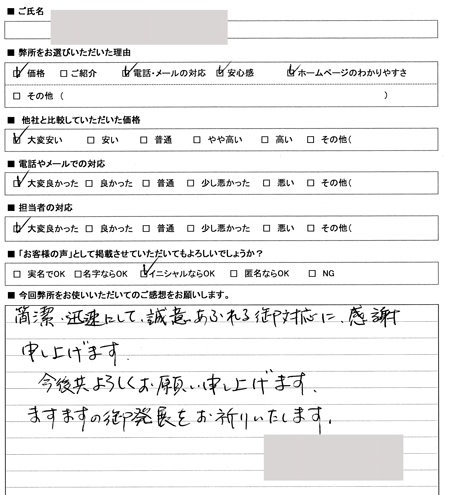 ■ ご氏名
■ 弊所をお選びいただいた理由
☑ 価格 □ ご紹介 ☑ 電話・メールの対応 ☑ 安心感 ☑ ホームページのわかりやすさ
□ その他 ( )
■ 他社と比較していただいた価格
☑ 大変安い □ 安い □ 普通 □ やや高い □ 高い □ その他(
■ 電話やメールでの対応
☑ 大変良かった □ 良かった □ 普通 □ 少し悪かった □ 悪い □ その他(
■ 担当者の対応
☑ 大変良かった □ 良かった □ 普通 □ 少し悪かった □ 悪い □ その他(
■ 「お客様の声」として掲載させていただいてもよろしいでしょうか?
□ 実名でOK □ 名字ならOK ☑ イニシャルならOK □ 匿名ならOK □ NG
■ 今回弊所をお使いいただいてのご感想をお願いします。
簡潔・迅速にして、誠意あふれる御対応に、感謝
申し上げます.
今後共よろしくお願い申し上げます.
ますますの御発展をお祈りいたします.